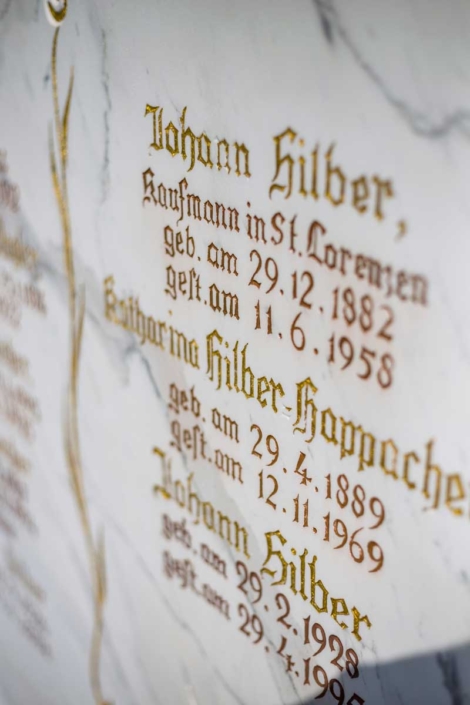 Johann Hilber,
Kaufmann in St. Lorenzen
geb. am 29. 12. 1882
gest. am 11. 6. 1958
Katharina Hilber-Happacher
geb. am 29. 4. 1889
gest. am 12. 11. 1969
Johann Hilber
geb. am 29. 2. 1928
gest. am 29. 4. 1995